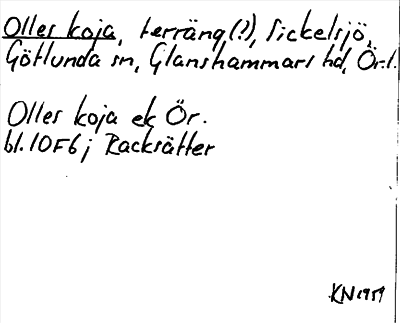 Olles koja, terräng(?), Sickelsjö,
Götlunda sn, Glanshammars hd, Ör.l.
Olles koja ek Ör.
bl. 10F6j Racksätter
KN 1959